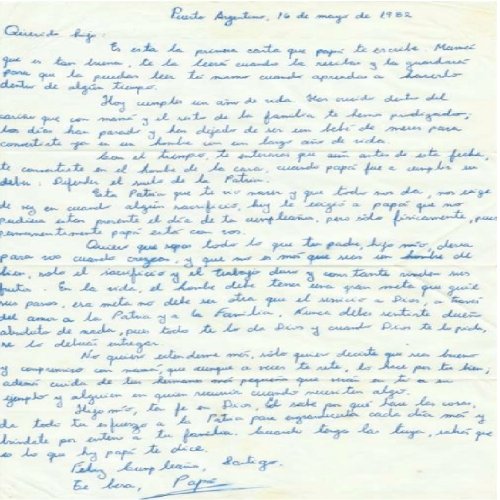 Puerto Argentino, 16 de mayo de 1982
Querido hijo:
Es esta la primera carta que papá te escribe. Mamá
que es tan buena, te la leerá cuando la recibas y la guardará
para que la puedas leer tú mismo cuando aprendas a hacerlo
dentro de algún tiempo.
Hoy cumples un año de vida. Has crecido dentro del
cariño que con mamá y el resto de la familia te hemos prodigado;
los días han pasado y has dejado de ser un bebé de meses para
convertirte ya en un hombre con un largo año de vida.
Con el tiempo, te enterarás que aún antes de esta fecha,
te convertiste en el hombre de la casa, cuando papá fue a cumplir su
deber: Defender el suelo de la Patria.
Esta Patria que te vio nacer y que todo nos da, nos exige
de vez en cuando algún sacrificio, hoy le exigió a papá que no
pudiera estar presente el día de tu cumpleaños, pero sólo físicamente, pues
permanentemente papá está con vos.
Quiero que sepas todo lo que tu padre, hijo mío, desea
para vos cuando crezcas, y que no es más que seas un hombre de
bien, sólo el sacrificio y el trabajo duro y constante rinden sus
frutos. En la vida, el hombre debe tener una gran meta que guíe
sus pasos, esa meta no debe ser otra que el servicio a Dios, a través
del amor a la Patria y a la Familia. Nunca debes sentirte dueño
absoluto de nada, pues todo te lo da Dios y cuando Dios te lo pida,
se lo deberás entregar.
No quiero extenderme más, sólo quiero decirte que seas bueno
y compresivo con mamá, que aunque a veces te rete, lo hace por tu bien,
además cuida de tus hermanos más pequeños que verán en ti a su
ejemplo y alguien en quien recurrir cuando necesiten algo.
Hijo mío, ten fe en Dios, Él sabe por qué hace las cosas,
da todo tu esfuerzo a la Patria para engrandecerla cada día más y
bríndate por entero a tu familia. Cuando tengas la tuya, sabrás que
es lo que hoy papá te dice.
Feliz Cumpleaños, Santiago.
Te besa, Papá